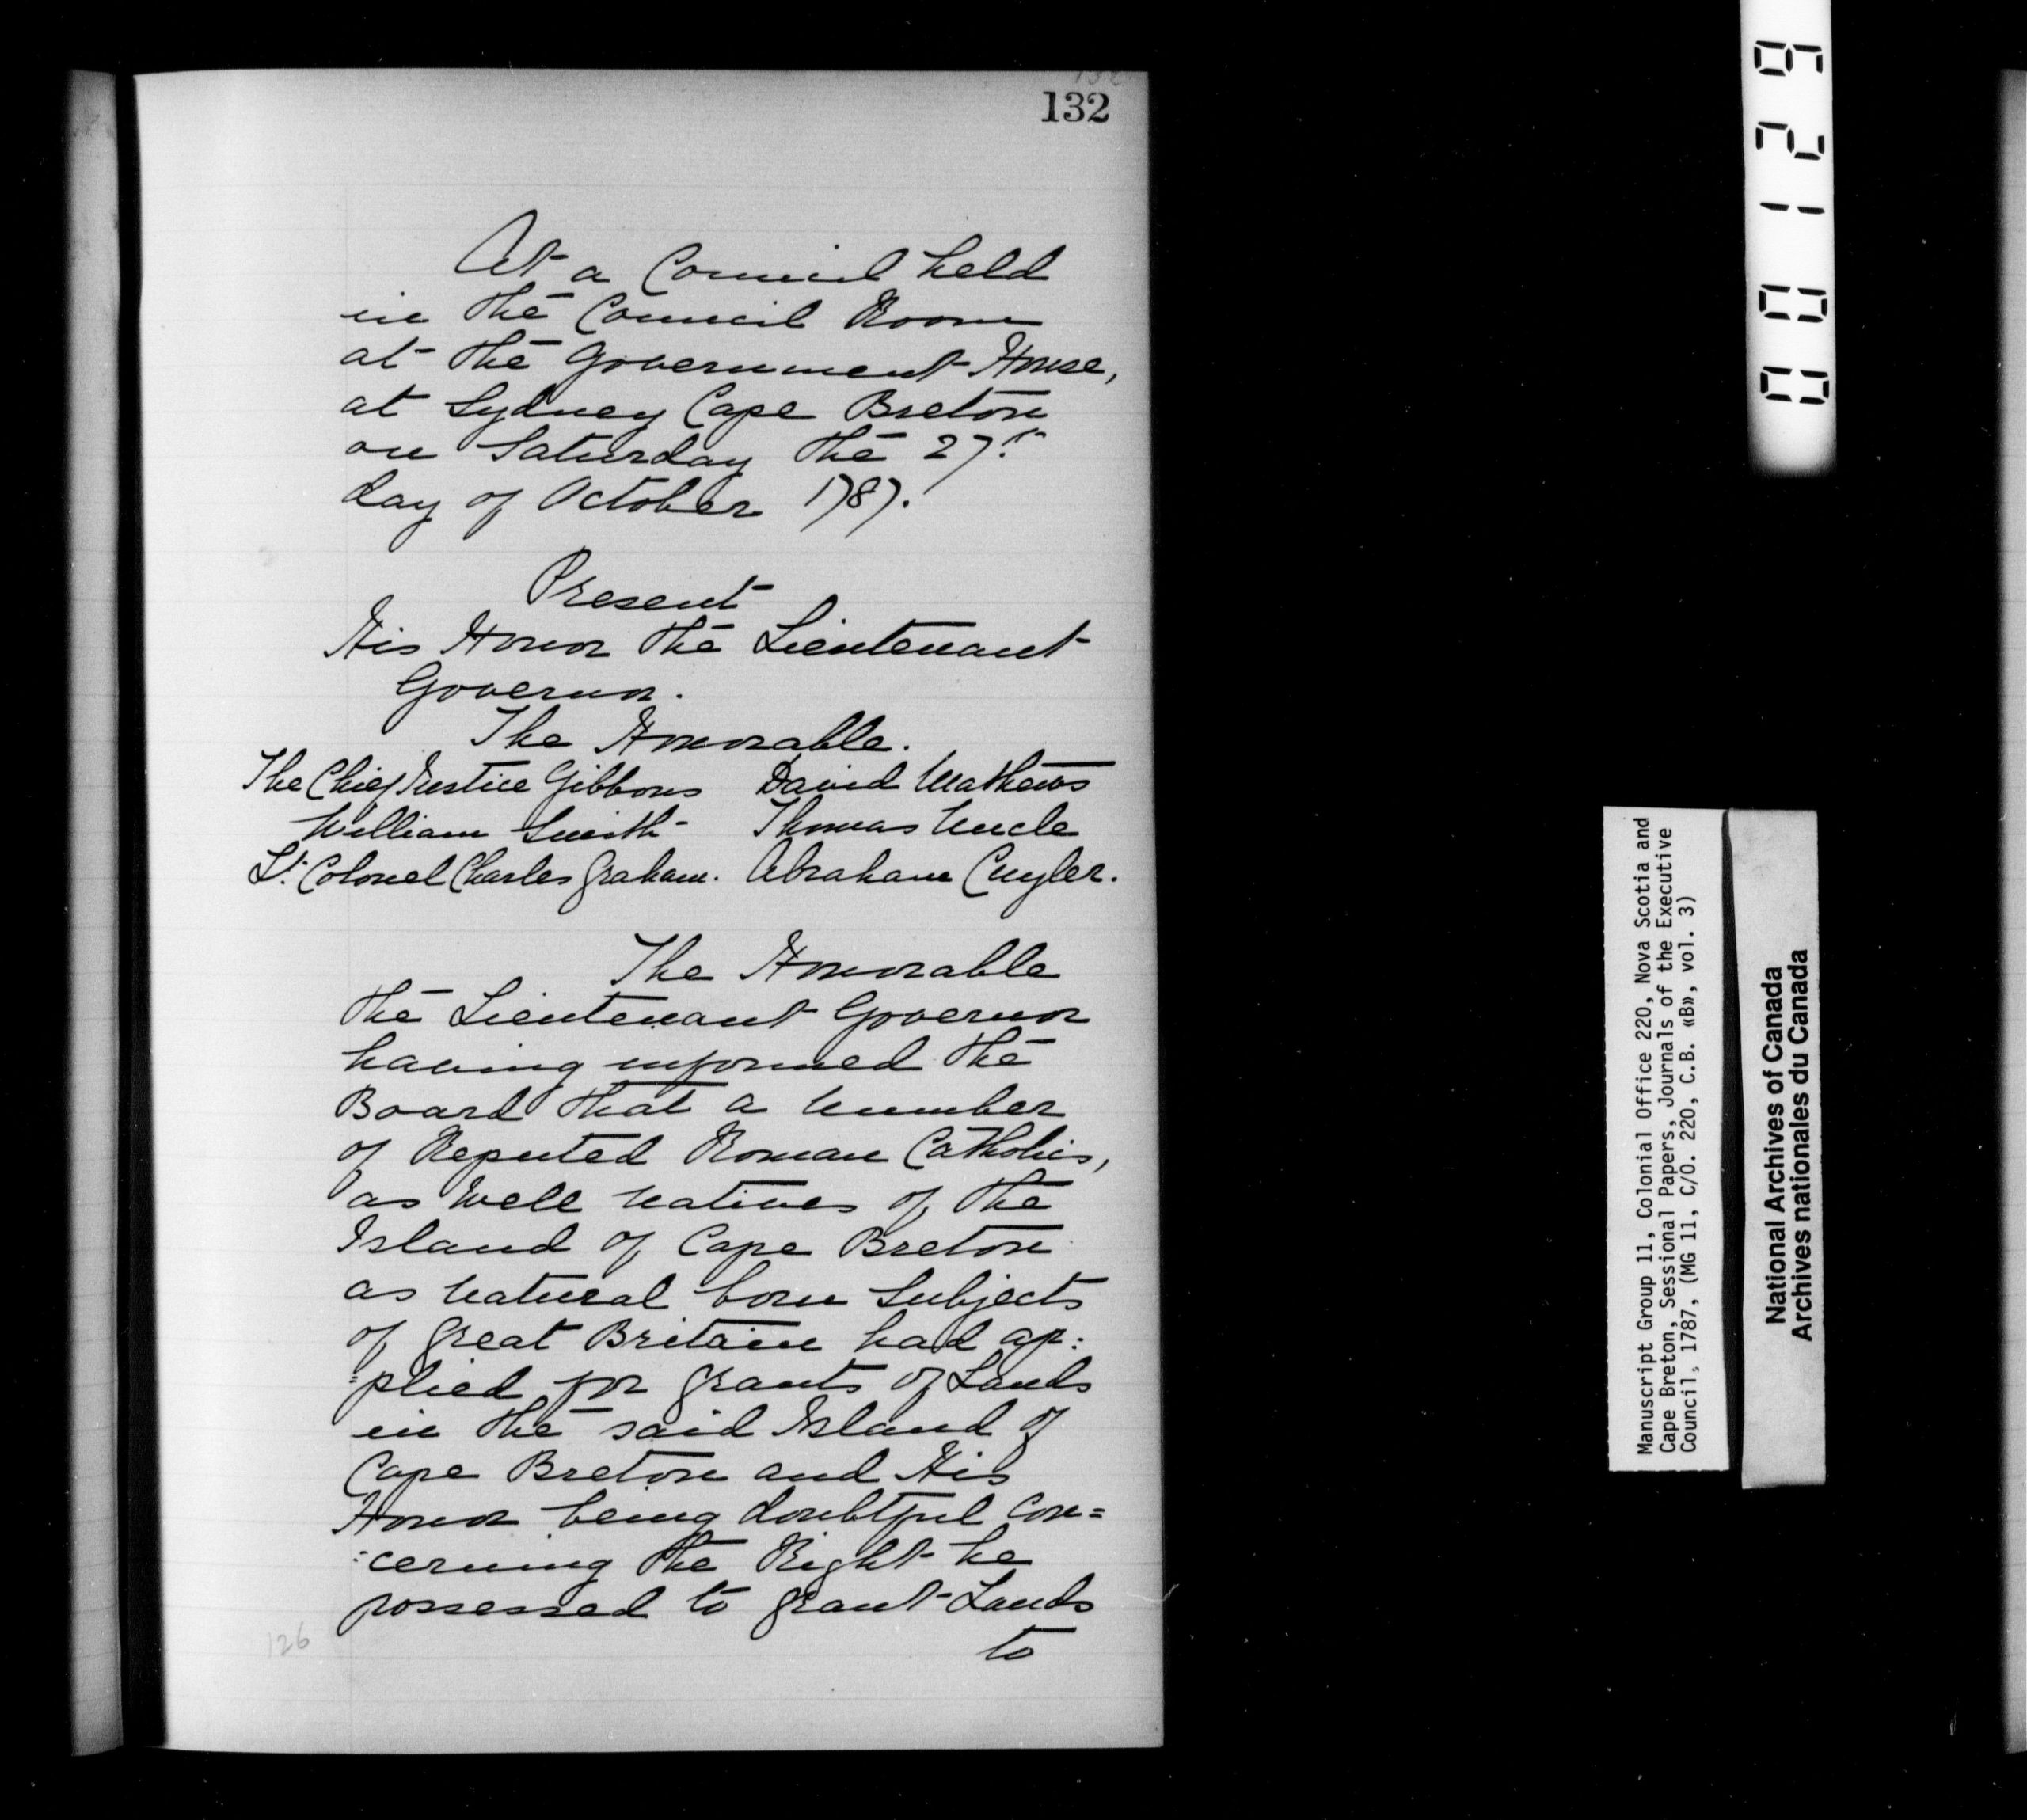 132
At a Council held
in the Council Room
at the Government House,
at Sydney Cape Breton
on Saturday the 27th
day of October 1787.
Present
His Honor the Lieutenant
Governor.
The Honorable.
The Chief Justice Gibbons David Mathews
William Smith Thomas Uncle
Lt. Colonel Charles Graham. Abraham Cuyler.
The Honorable
the Lieutenant Governor
having informed the
Board that a number
of Reputed Roman Catholics,
as well natives of the
Island of Cape Breton
as natural born Subjects
of Great Britain had ap:
=plied for grants of Lands
in the said Island of
Cape Breton and His
Honor being doubtful con=
:cerning the Right he
possessed to grant Lands
to
126
000129
Manuscript Group 11, Colonial Office 220, Nova Scotia and
Cape Breton, Sessional Papers, Journals of the Executive
Council, 1787, (MG 11, C/O. 220, C.B. «B», vol. 3)
National Archives of Canada
Archives nationales du Canada